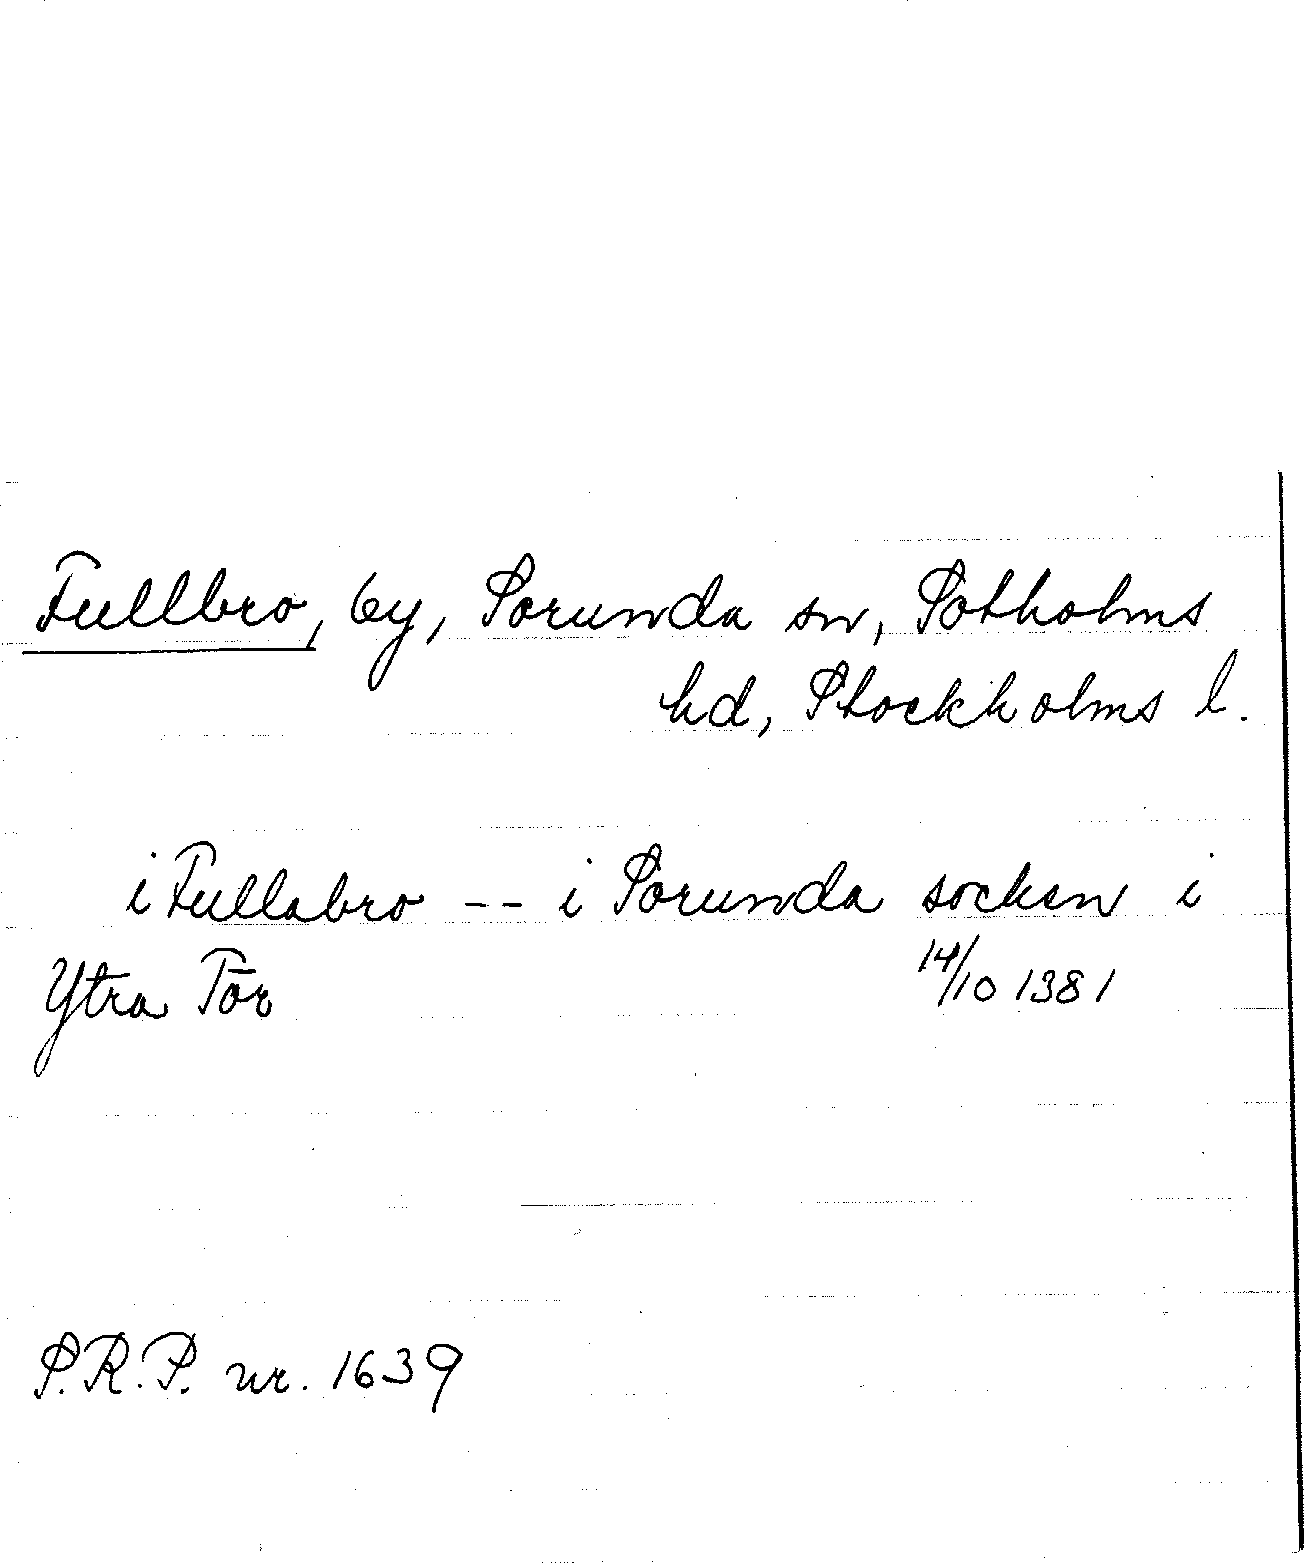 Fullbro, by, Sorunda sn, Sotholms
hd, Stockholms l.
i Fullabro -- i Sorunda socken i
Ytra Tör
14/10 1381
S.R.P. nr. 1639